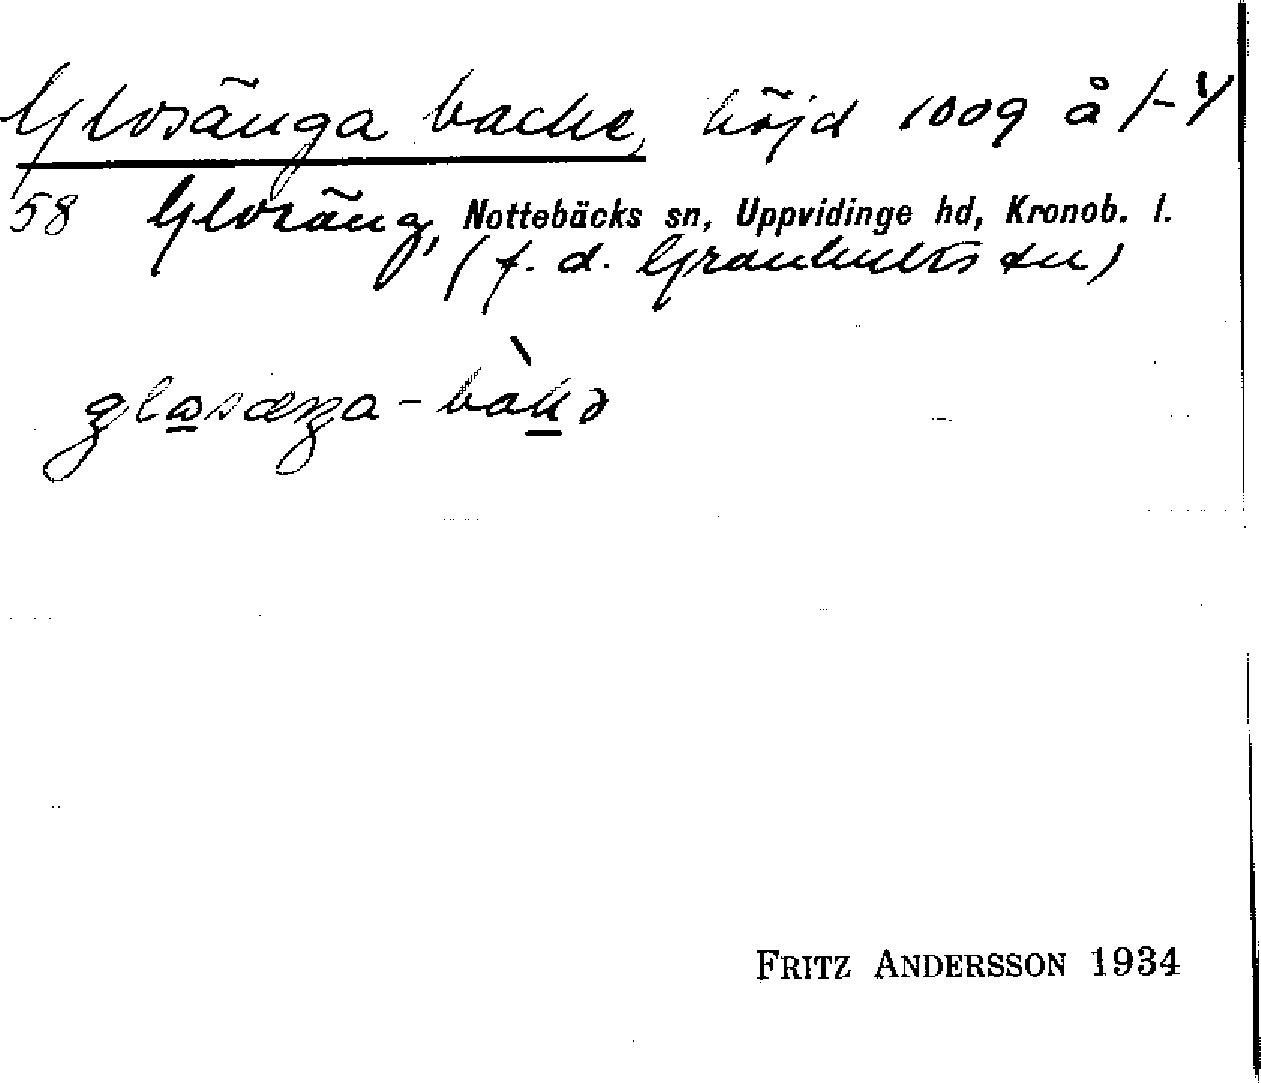 Glosänga backe, höjd 1009 å 1-4
58 Glosäng, Nottebäcks sn, Uppvidinge hd, Kronob. l.
(f. d. Granhults sn)
FRITZ ANDERSSON 1934